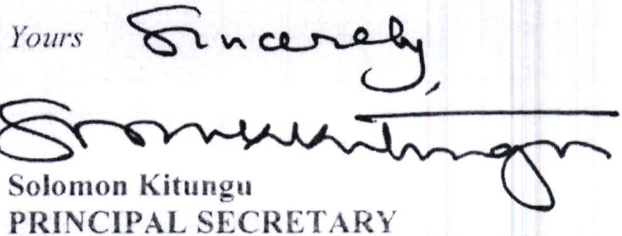 Yours Sincerely,
Solomon Kitungu
PRINCIPAL SECRETARY